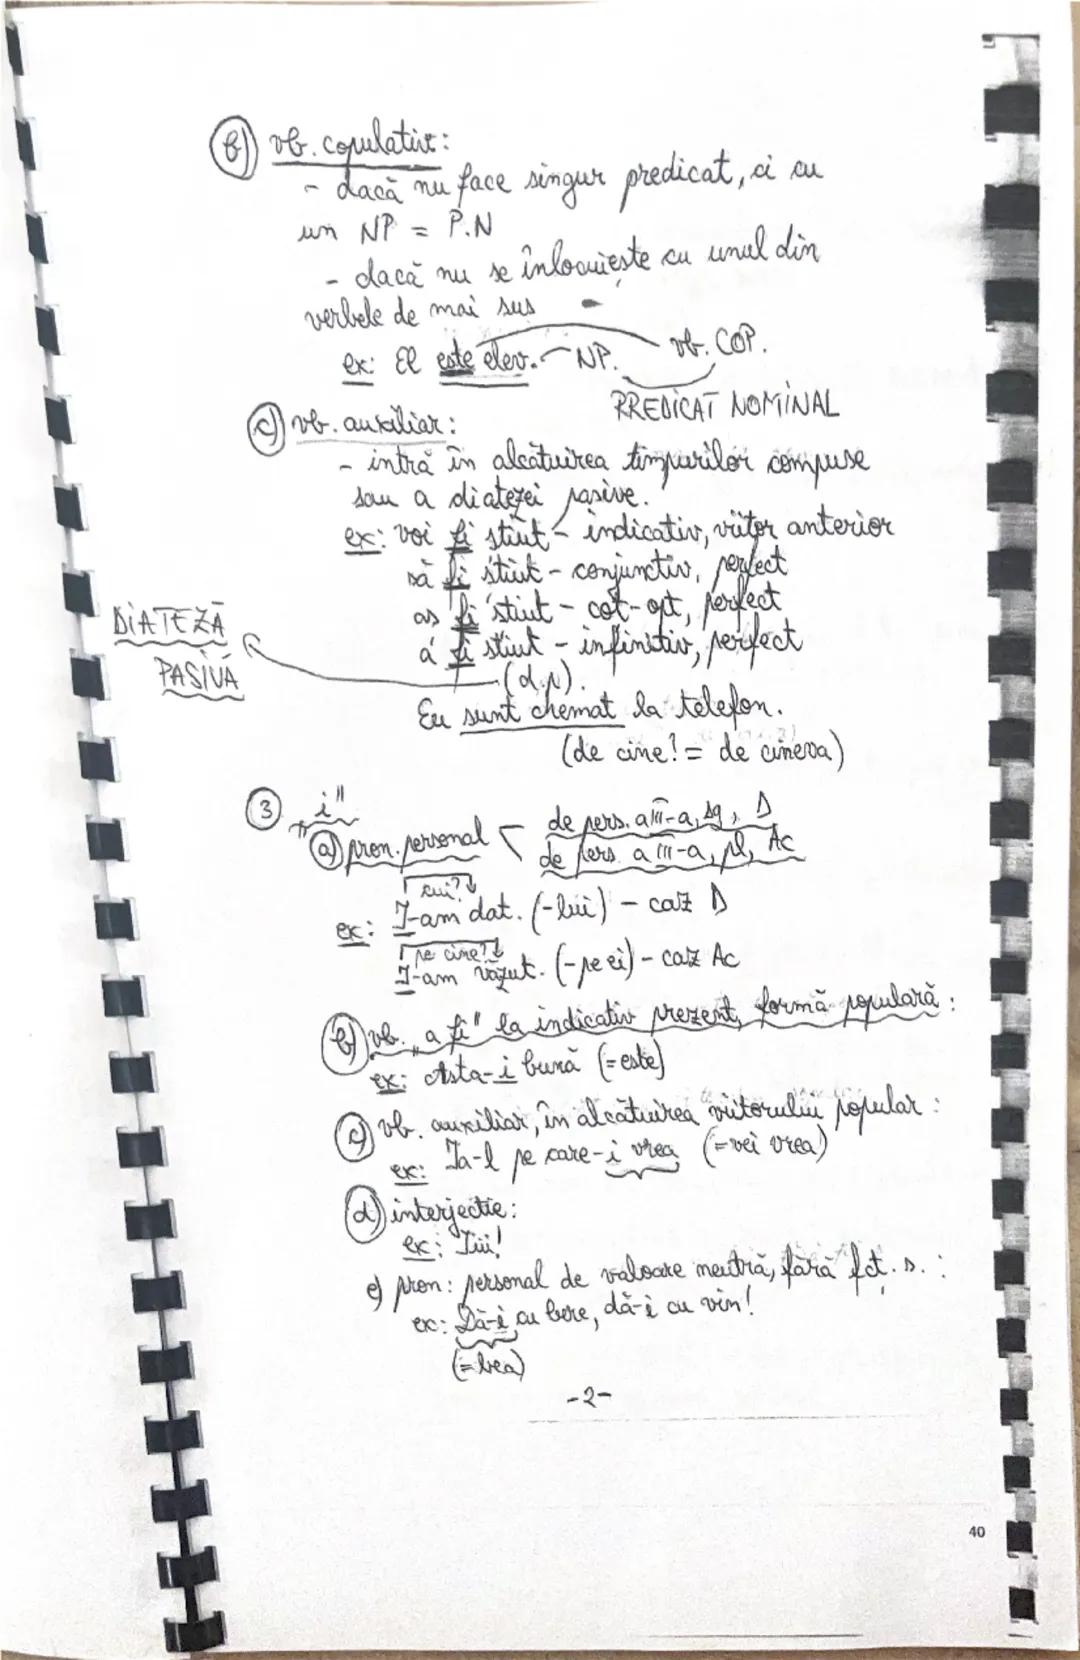 b) vb. copulativ:
- dacă nu face singur predicat, ci cu
un NP = P.N
- dacă nu se înlocuiește cu unul din
verbele de mai sus
ex: El este elev. NP. vb. COP.
PREDICAT NOMINAL
c) vb. auxiliar:
- intră în alcătuirea timpurilor compuse
sau a diatezei pasive.
ex: voi fi știut - indicativ, viitor anterior
să fi știut - conjunctiv, perfect
aș fi știut - cot-opt, perfect
a fi știut - infinitiv, perfect
DIATEZĂ
PASIVĂ
(d.p).
Eu sunt chemat la telefon.
(de cine? = de cineva)
3. „i"
a) pron. personal < de pers. a III-a, sg, D
de pers. a III-a, pl, Ac
cui?
ex: I-am dat. (-lui) - caz D
pe cine?
I-am văzut. (-pe ei) - caz Ac
b) vb. „a fi" la indicativ prezent, formă populară:
ex: Asta-i bună (=este)
c) vb. auxiliar, în alcătuirea viitorului popular:
ex: Ia-l pe care-i vrea (=vei vrea)
d) interjecție:
ex: Iii!
e) pron: personal de valoare neutră, fără fct. s. :
ex: Dă-i cu bere, dă-i cu vin!
(=bea)
-2-
40